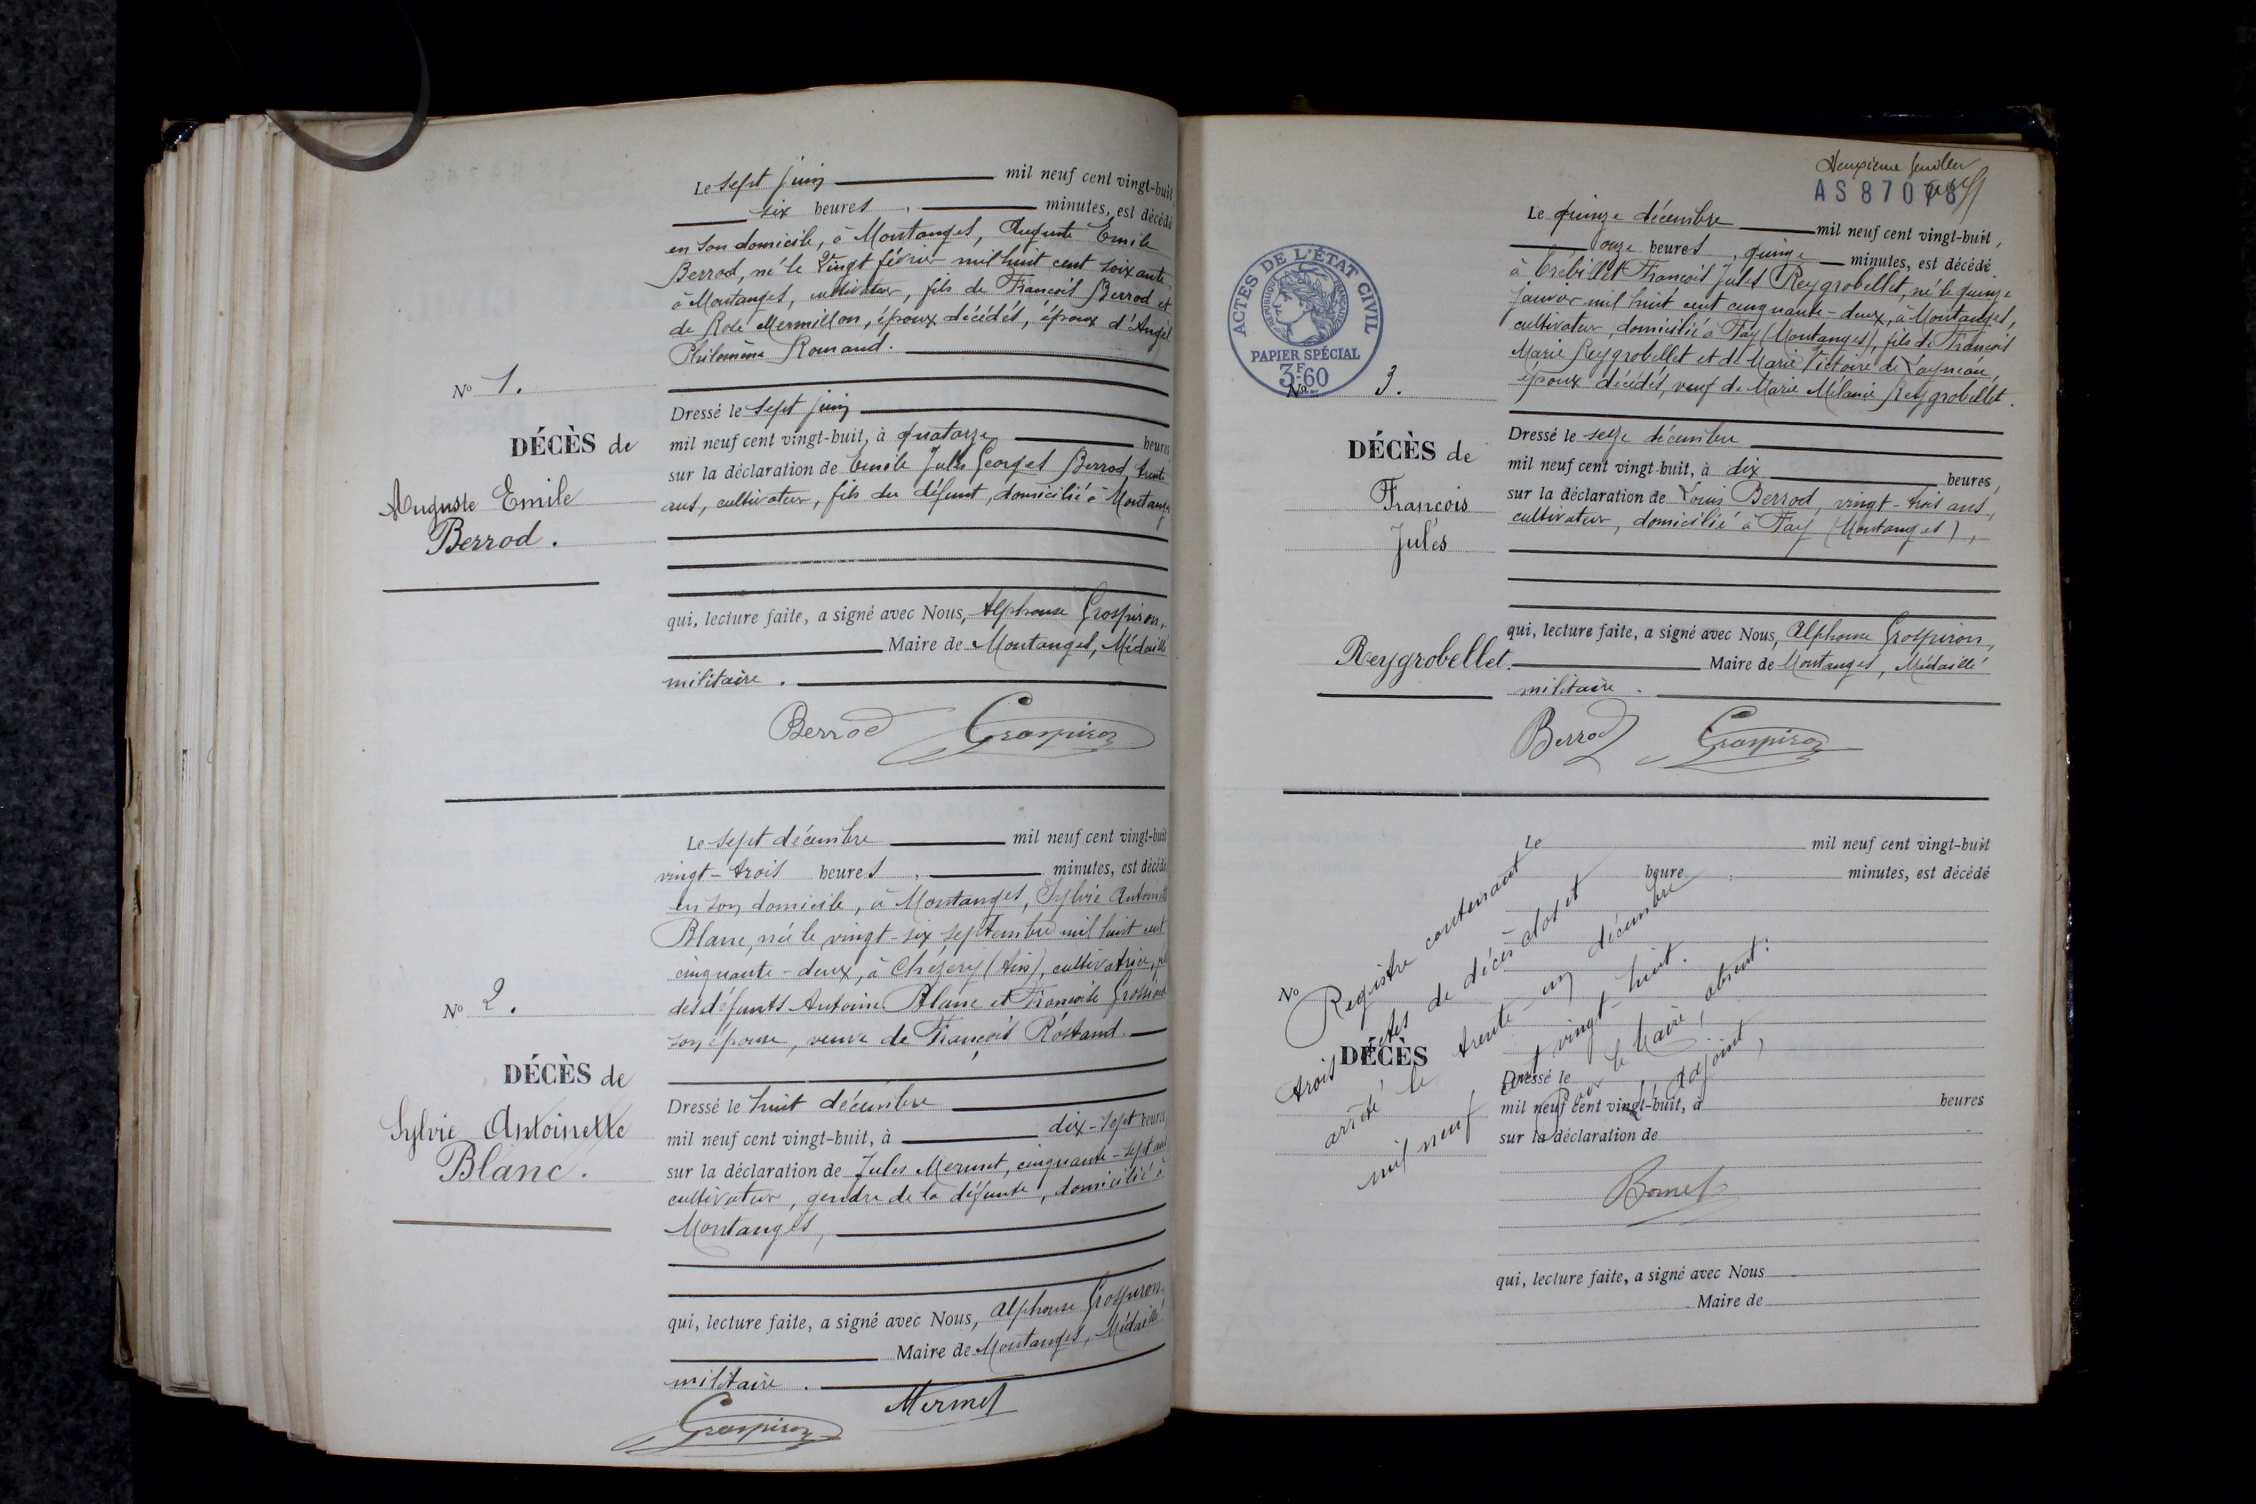 Le sept juin mil neuf cent vingt-huit
six heures, minutes, est décédé
en son domicile, à Montanges, Auguste Emile
Berrod, né le vingt février mil huit cent soixante
à Montanges, cultivateur, fils de François Berrod et
de Rose Mermillon, époux décédés, époux d'Angèl
Philomène Romand.
No 1.
DÉCÈS de
Auguste Emile
Berrod.
Dressé le sept juin
mil neuf cent vingt-huit, à quatorze heures
sur la déclaration de Emile Jules Georges Berrod, trente
ans, cultivateur, fils du défunt, domicilié à Montanges
qui, lecture faite, a signé avec Nous, Alphonse Grospiron,
Maire de Montanges, Médaillé
militaire.
Berrod Grospiron
Le sept décembre mil neuf cent vingt-huit
vingt-trois heures, minutes, est décédé
en son domicile, à Montanges, Sylvie Antoinette
Blanc, née le vingt-six septembre mil huit cent
cinquante-deux, à Chézery (Ain), cultivatrice,
des défunts Antoine Blanc et Françoise
son épouse, veuve de François Rostand.
No 2.
DÉCÈS de
Sylvie Antoinette
Blanc.
Dressé le huit décembre
mil neuf cent vingt-huit, à dix-sept heures
sur la déclaration de Jules Mermet, cinquante-sept ans
cultivateur, gendre de la défunte, domicilié à
Montanges,
qui, lecture faite, a signé avec Nous, Alphonse Grospiron,
Maire de Montanges, Médaillé
militaire.
Grospiron Mermet
Deuxième feuillet
AS87018
ACTES DE L'ÉTAT CIVIL
RÉPUBLIQUE FRANÇAISE
PAPIER SPÉCIAL
3F60
Le quinze décembre mil neuf cent vingt-huit,
onze heures, quinze minutes, est décédé
à Trébillet François Jules Reygrobellet, né le quinze
janvier mil huit cent cinquante-deux, à Montanges,
cultivateur, domicilié à Fay (Montanges), fils de François
Marie Reygrobellet et de Marie Victoire de Layneau,
époux décédés, veuf de Marie Mélanie Reygrobellet.
No 3.
DÉCÈS de
François
Jules
Reygrobellet.
Dressé le seize décembre
mil neuf cent vingt-huit, à dix heures,
sur la déclaration de Louis Berrod, vingt-trois ans,
cultivateur, domicilié à Fay (Montanges),
qui, lecture faite, a signé avec Nous, Alphonse Grospiron,
Maire de Montanges, Médaillé
militaire.
Berrod Grospiron
Le mil neuf cent vingt-huit
heure, minutes, est décédé
No
DÉCÈS
Dressé le
mil neuf cent vingt-huit, à heures
sur la déclaration de
Registre contenant
trois actes de décès clos et
arrêté le trente-un décembre
mil neuf cent vingt-huit.
Pour le Maire, absent:
l'Adjoint,
Bornet
qui, lecture faite, a signé avec Nous
Maire de